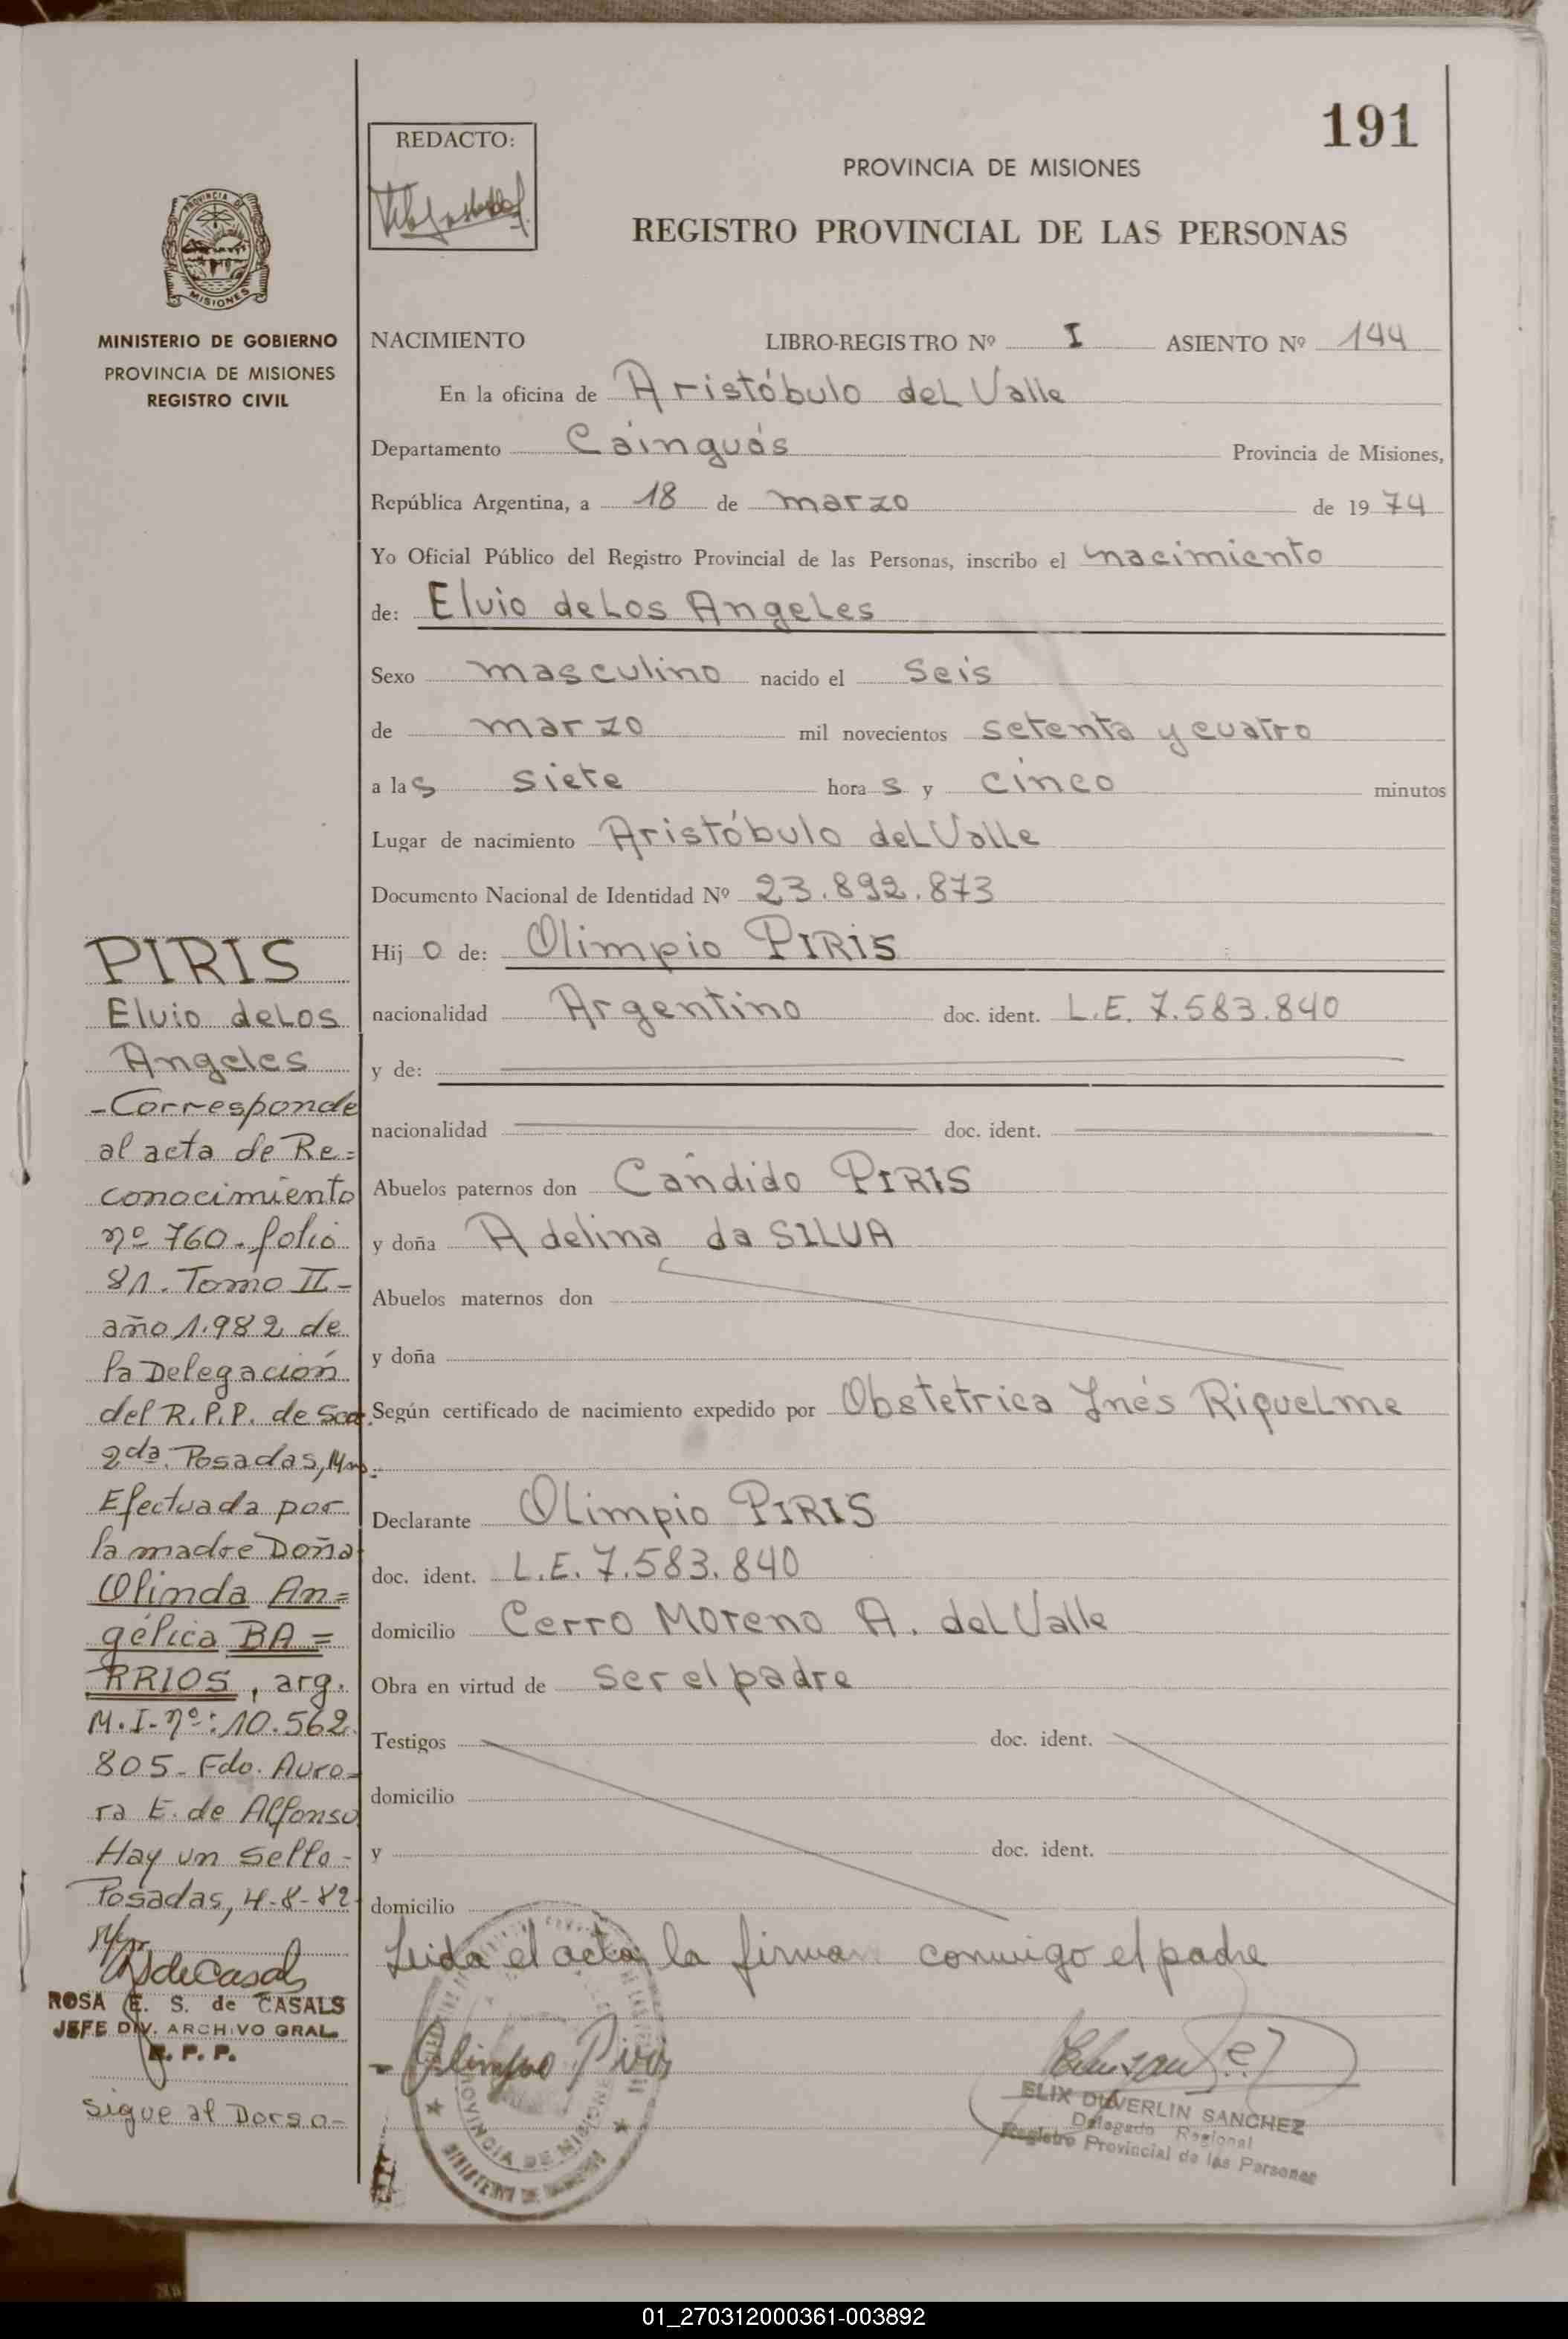 191
REDACTO:
PROVINCIA DE MISIONES
REGISTRO PROVINCIAL DE LAS PERSONAS
PROVINCIA DE
MISIONES
MINISTERIO DE GOBIERNO
PROVINCIA DE MISIONES
REGISTRO CIVIL
NACIMIENTO LIBRO-REGISTRO Nº I ASIENTO Nº 144
En la oficina de Aristóbulo deL Valle
Departamento Cáinguás Provincia de Misiones,
República Argentina, a 18 de marzo de 1974
Yo Oficial Público del Registro Provincial de las Personas, inscribo el nacimiento
de: Elvio deLos AngeLes
Sexo masculino nacido el Seis
de marzo mil novecientos setenta y cuatro
a las siete horas y cinco minutos
Lugar de nacimiento Aristóbulo deLValle
Documento Nacional de Identidad Nº 23.892.873
Hijo de: Olimpio PIRIS
nacionalidad Argentino doc. ident. L.E. 7.583.840
y de:
nacionalidad doc. ident.
Abuelos paternos don Cándido PIRIS
y doña Adelina da SILVA
Abuelos maternos don
y doña
Según certificado de nacimiento expedido por Obstetrica Inés RiqueLme
Declarante OLimpio PIRIS
doc. ident. L.E. 7.583.840
domicilio Cerro Moreno A. del Valle
Obra en virtud de ser el padre
Testigos doc. ident.
domicilio
y doc. ident.
domicilio
Leida el acta, la firman conmigo el padre
Olimpio Piris
PROVINCIA DE MISIONES
ELIX DUVERLIN SANCHEZ
Delegado Regional
Registro Provincial de las Personas
PIRIS
Elvio deLos
Angeles
-Corresponde
al acta de Re=
conocimiento
nº 760. folio
81. Tomo II-
año 1.982 de
la Delegación
del R.P.P. de Scc.
2da. Posadas, Mns.
Efectuada por
la madre Doña
Olinda An=
gélica BA=
RRIOS, arg.
M.I-nº: 10.562.
805- Fdo. Auro=
ra E. de Alfonso
Hay un sello-
Posadas, 4-8-82
RSdeCasals
ROSA E. S. de CASALS
JEFE DIV. ARCHIVO GRAL.
R. P. P.
Sigue al Dorso-
01_270312000361-003892